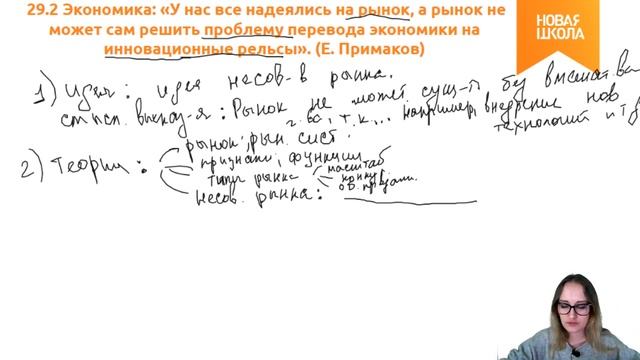 29.2 Экономика: «У нас все надеялись на рынок, а рынок не
может сам решить проблему перевода экономики на
инновационные рельсы». (Е. Примаков)
НОВАЯ
ШКОЛА
1) Идея: идея несов-в рынка.
смысл. выказ-я: Рынок не может сущ-ть без вмешат-ва
г-ва, т.к... например, внедрение нов.
технологий и т.д
2) Теория:
рынок, рын. сист.
признаки, функции
типы рынка
масштаб
конку.
несов. рынка: